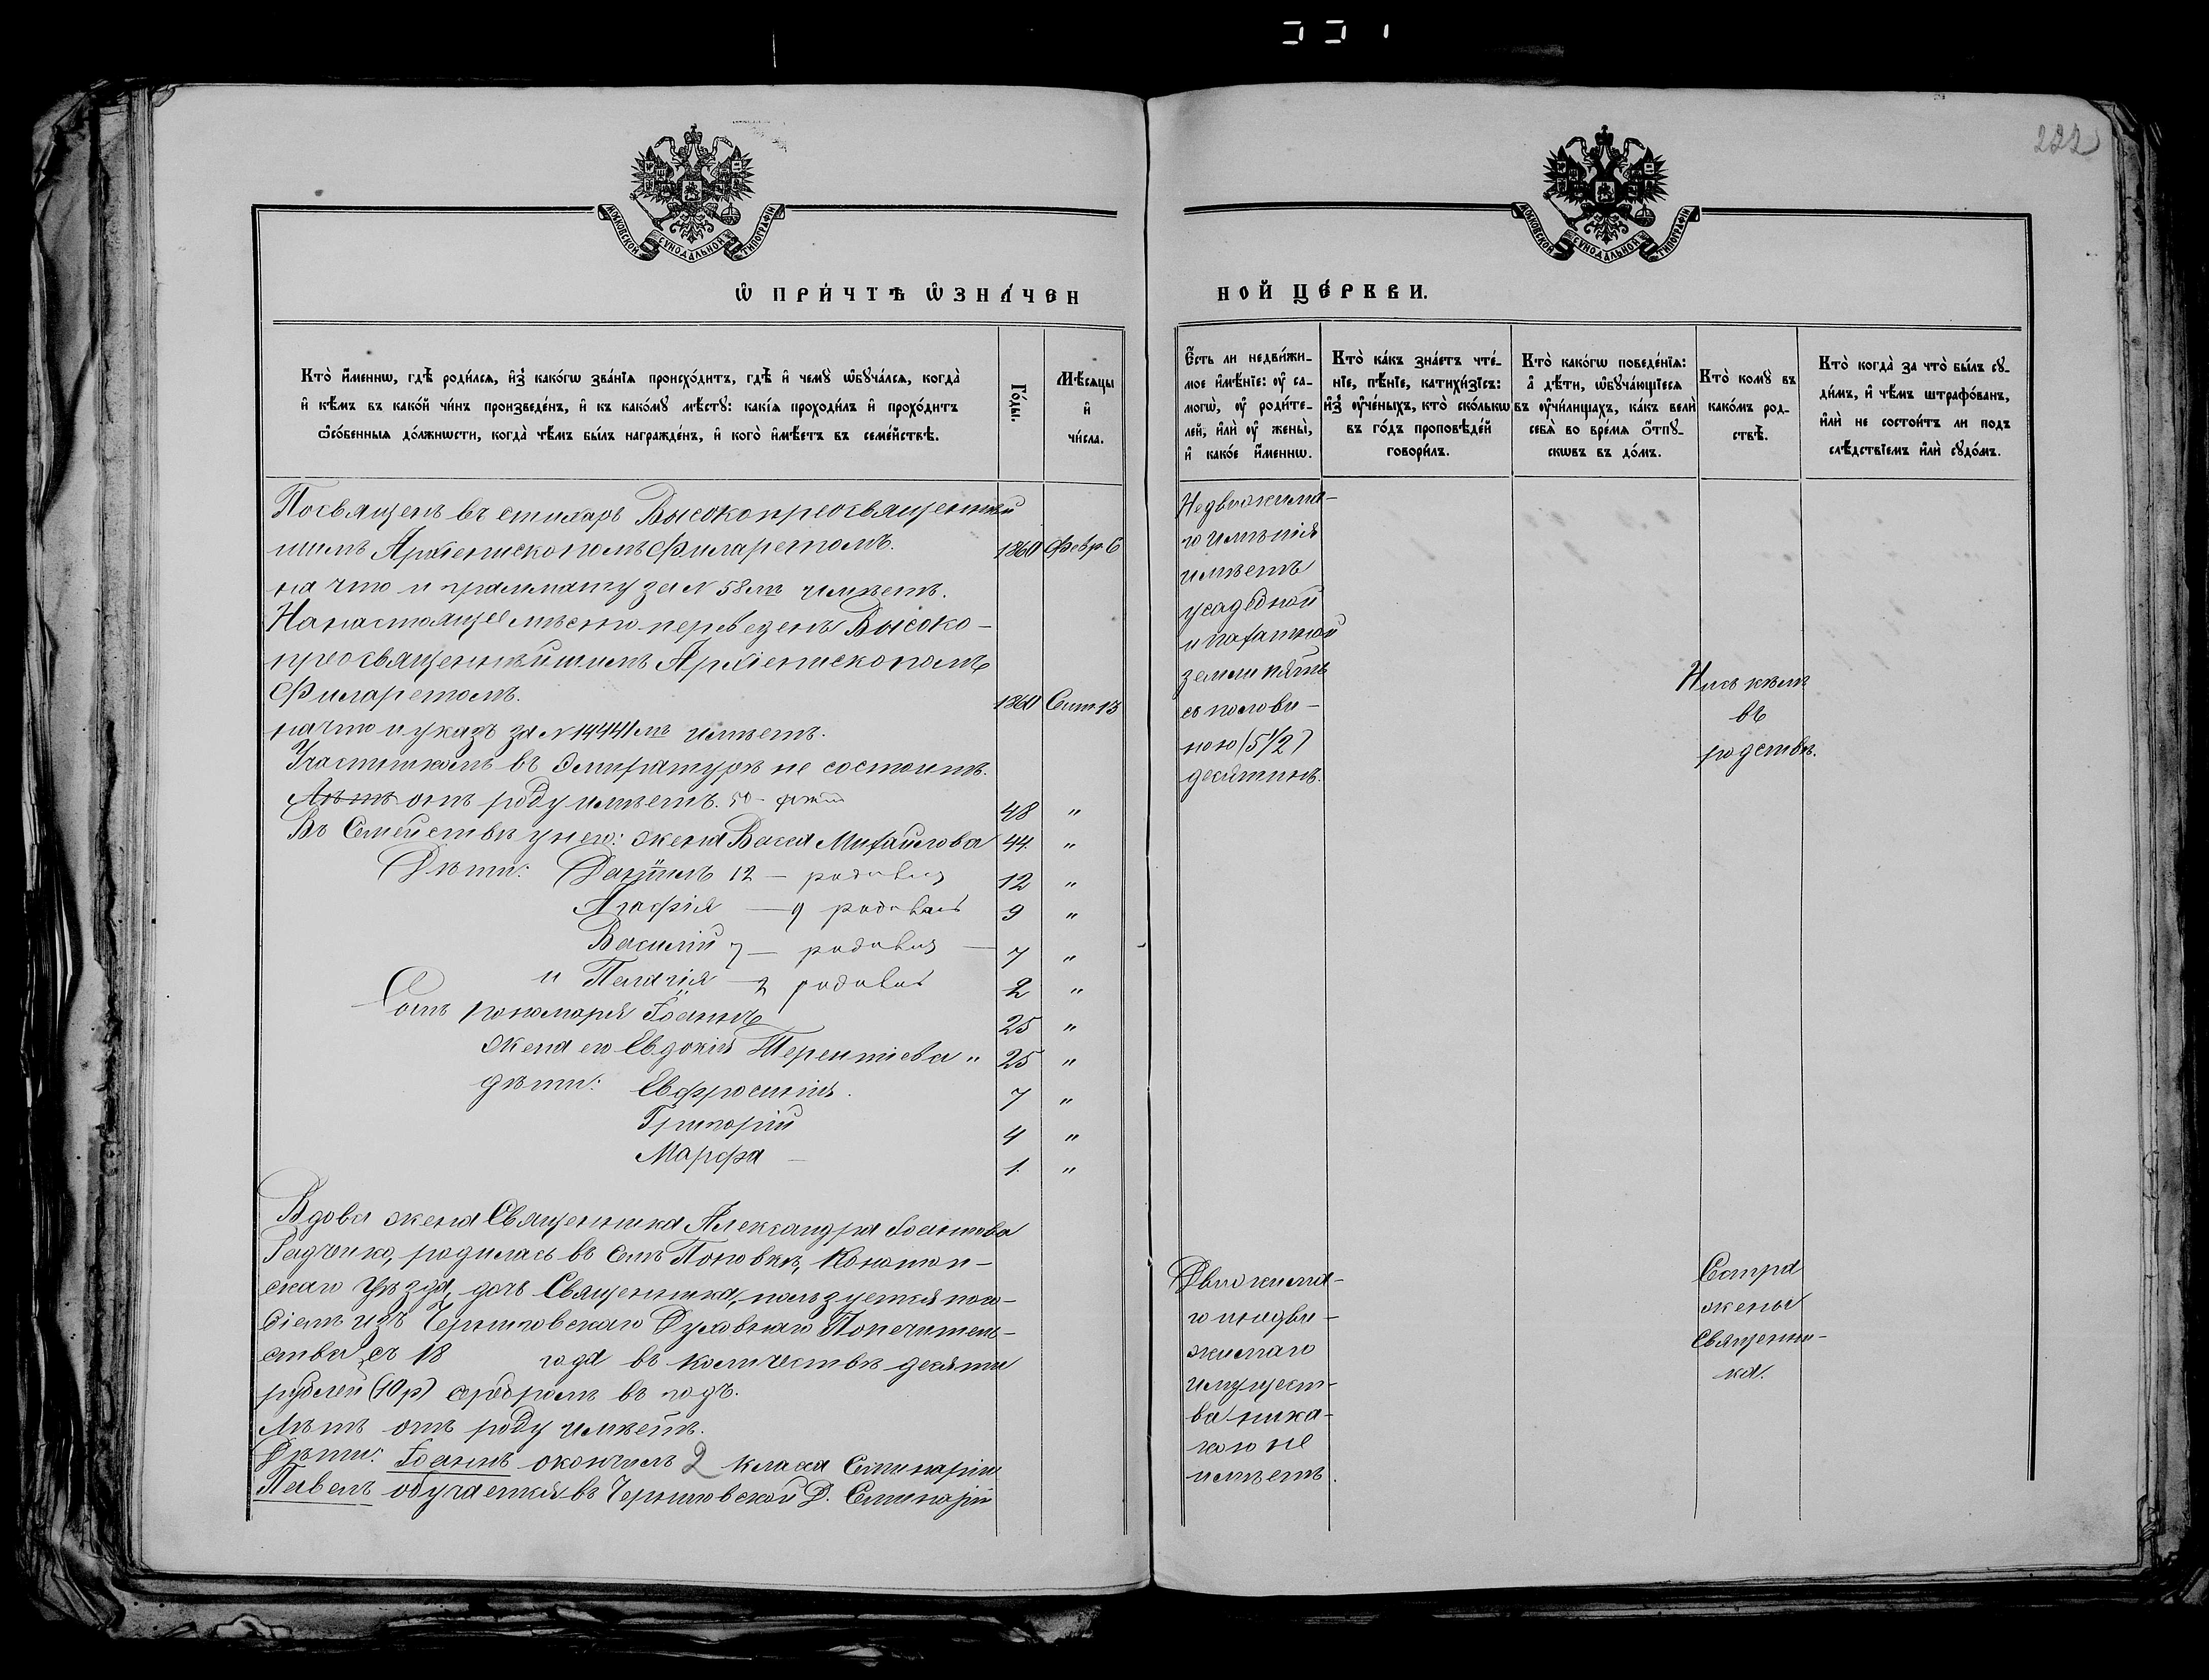 222
МОСКОВСКОЙ СѴНОДАЛЬНОЙ ТИПОГРАФІИ
МОСКОВСКОЙ СѴНОДАЛЬНОЙ ТИПОГРАФІИ
Ѡ ПРИ́ЧТѢ ѠЗНА́ЧЕН
НОЙ ЦЕ́РКВИ.
Кто̀ и҆́меннѡ, гдѣ̀ роди́лсѧ, и҆з̾ како́гѡ зва́нїѧ происхо́дитъ, гдѣ̀ и҆ чемꙋ̀ ѡ҆бꙋча́лсѧ, когда̀
и҆ кѣ́мъ въ како́й чи́нъ произведе́нъ, и҆ къ како́мꙋ мѣ́стꙋ: какі̑ѧ проходи́лъ и҆ прохо́дитъ
ѻ҆со́бенныѧ до́лжнѡсти, когда̀ чѣ́мъ бы́лъ награжде́нъ, и҆ кого̀ и҆мѣ́етъ въ семе́йствѣ.
Го́ды.
Мѣ́сѧцы
и҆
чи́сла.
Є҆́сть ли недви́жи-
мое и҆мѣ́нїе: ᲂу҆ са-
могѡ̀, ᲂу҆ роди́те-
лей, и҆лѝ ᲂу҆ жены̀,
и҆ како́е и҆́меннѡ.
Кто̀ ка́къ зна́етъ чте́-
нїе, пѣ́нїе, катихи́зїсъ:
и҆з̾ ᲂу҆че́ныхъ, кто̀ ско́лькѡ
въ го́дъ проповѣ́дей
говори́лъ.
Кто̀ како́гѡ поведе́нїѧ:
а҆ дѣ́ти, ѡ҆бꙋча́ющїесѧ
въ ᲂу҆чи́лищахъ, ка́къ велѝ
себѧ̀ во вре́мѧ ѿпꙋ-
сковъ въ до́мъ.
Кто̀ комꙋ̀ въ
како́мъ род-
ствѣ̀.
Кто̀ когда̀ за что̀ бы́лъ сꙋ-
ди́мъ, и҆ чѣ́мъ штрафо́ванъ,
и҆лѝ не состои́тъ ли подъ
слѣ́дствїемъ и҆лѝ сꙋдо́мъ.
Посвященъ въ стихарь Высокопреосвященнѣй
шимъ Архіепископомъ Филаретомъ. 1860 Февр. 6
на что и граммату за N 58мъ имѣетъ.
На настоящее мѣсто переведенъ Высоко-
преосвященнѣйшимъ Архіепископомъ
Филаретомъ. 1860 Сент. 13
на что и указъ за N 14441мъ имѣетъ.
Участникомъ въ Эмиратурѣ не состоитъ.
Лѣтъ отъ роду имѣетъ. 50- 48 "
Въ Семействѣ у него: жена Васса Михайлова 44 "
Дѣти: Даніилъ 12 — родился 12 "
Агафія — 9 родилась 9 "
Василій 7 — родился — 7 "
и Пелагія — 2 родилась 2 "
Сынъ пономаря Іоаннъ 25 "
Жена его Евдокія Терентіева " 25 "
дѣти: Евфросинія. 7 "
Григорій 4 "
Марфа — 1. "
Вдова жена Священника Александра Іоаннова
Радченко, родилась въ Селѣ Поповкѣ, Конотоп-
скаго уѣзда, дочь Священника, пользуется посо-
біемъ изъ Черниговскаго Духовнаго Попечитель-
ства съ 18 года въ количествѣ десяти
рублей (10 р) серебромъ въ годъ.
Лѣтъ отъ роду имѣетъ.
Дѣти: Іоаннъ окончилъ 2 класса Семинаріи
Павелъ обучается въ Черниговской Д. Семинаріи
Недвижима-
го имѣнія
имѣетъ
усадебной
и пахатной
земли пять
съ полови-
ною (5 1/2)
десятинъ.
Ни съ кѣмъ
въ
родствѣ.
Движима-
го и недви-
жимаго
имущест-
ва ника-
кого не
имѣетъ.
Сестра
жены
Священни-
ка.